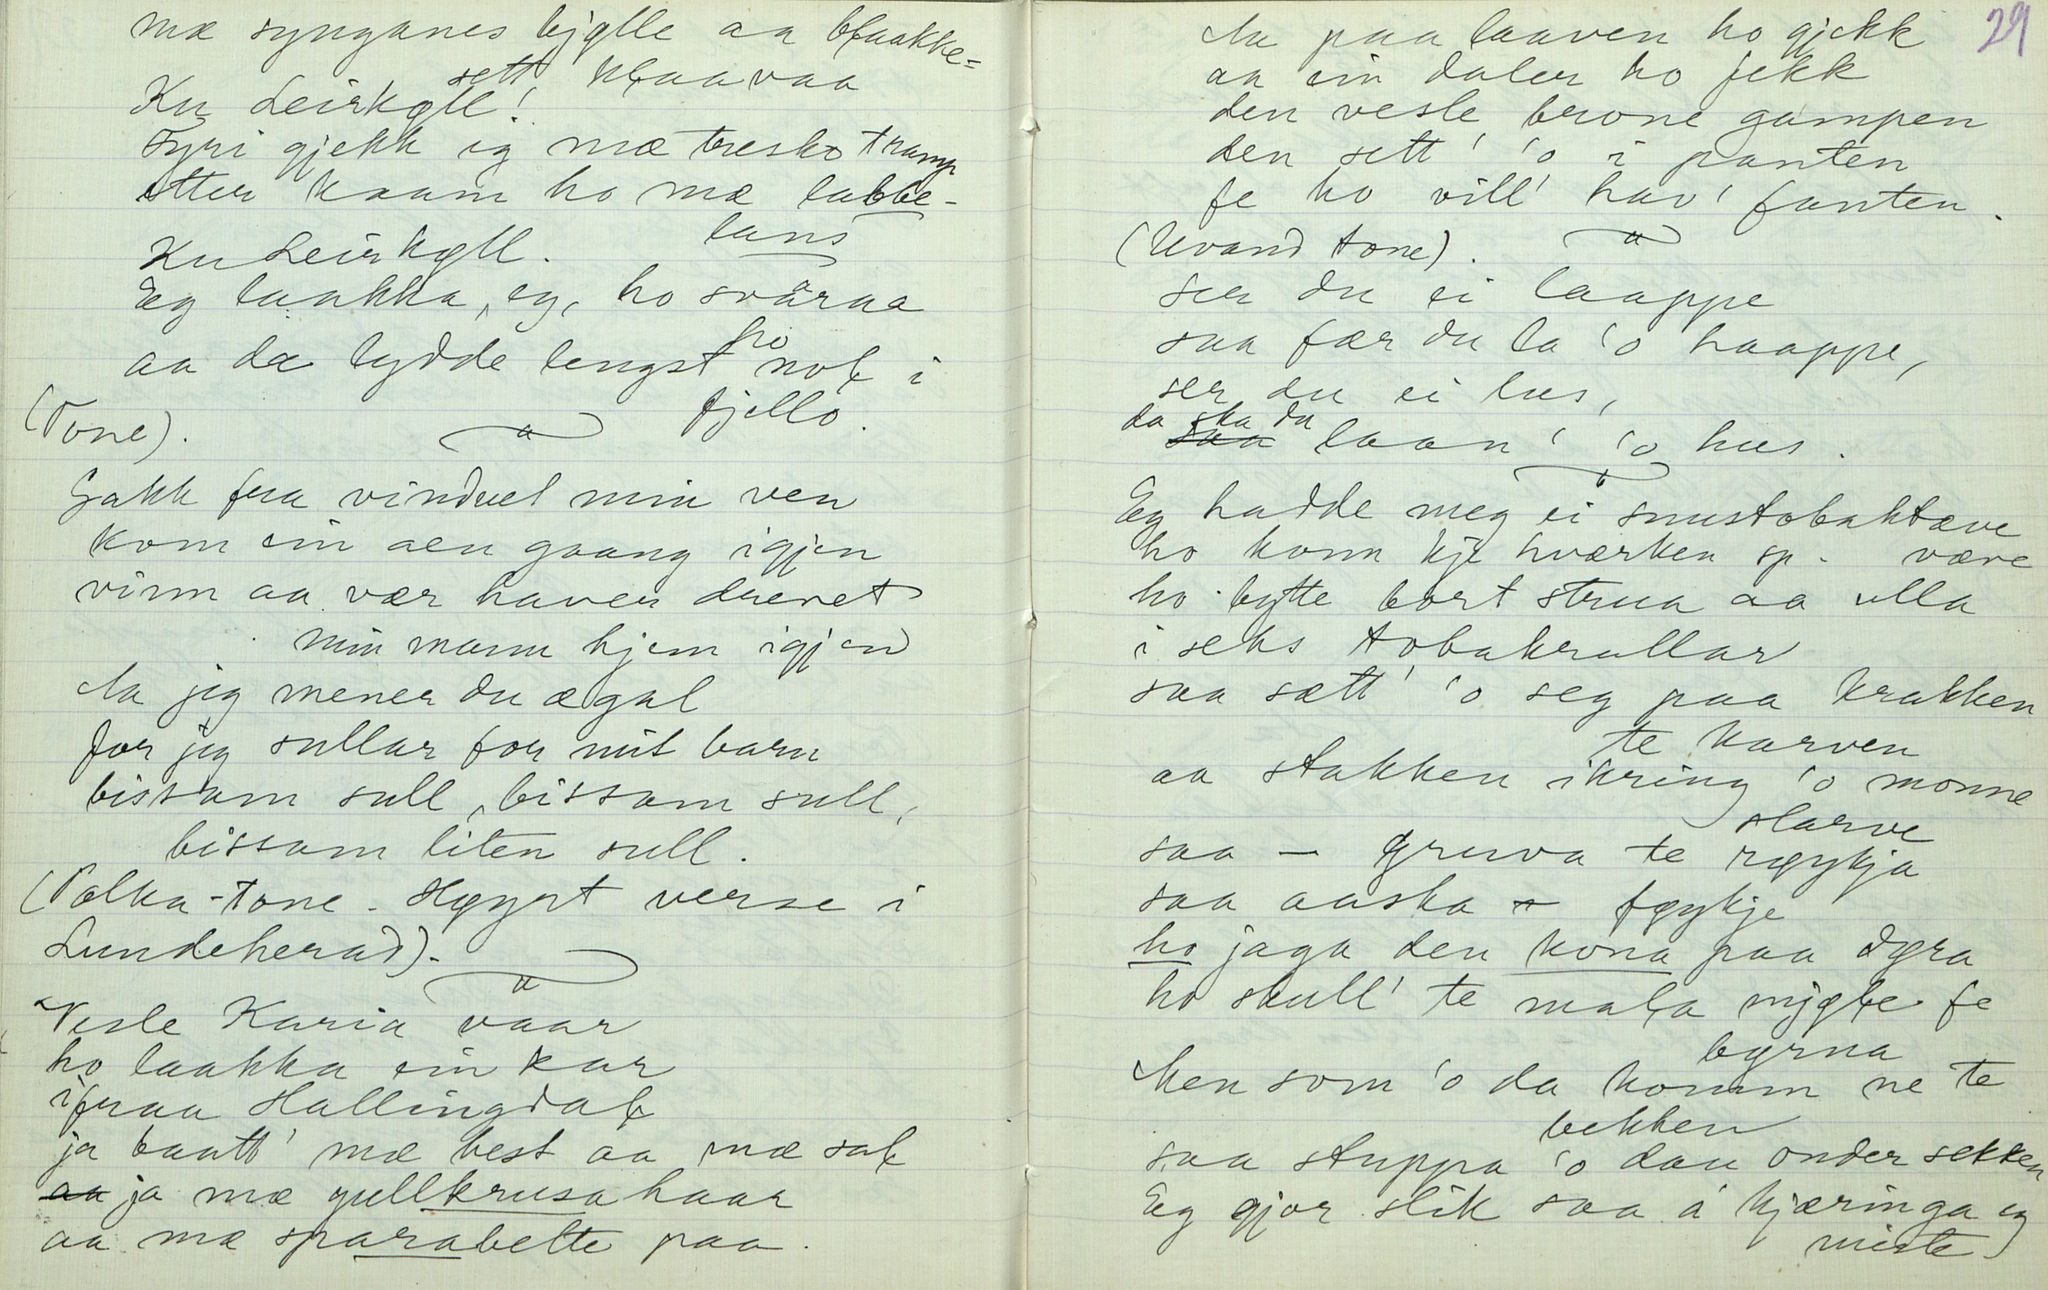 mæ synganes bjølle aa blaakke-
sett klaavaa
Ku Leirkøll!
Fyri gjekk eg mæ tresko tramp
etter kaam ho mæ labbe-
lans
Ku Leirkøll.
Eg laakka, eg, ho svåraa
aa da lydde lengst ho nol i
fjello.
(Tone).
Gakk fra vinduet min ven
kom ein aen gaang igjen
vinn aa vær haver drevet
min mann hjem igjen
Aa jeg mener du æ gal
for jeg sullar for mit barn
bissam sull, bissam sull,
bissam liten sull.
(Polka-tone. Høyrt verse i
Lundeherad).
Vesle Karia vaar
ho laakka ein kar
ifraa Hallingdal
ja baatt' mæ hest aa mæ sal
aa ja mæ gullkrusa haar
aa mæ sparabelte paa.
29
Aa paa laaven ho gjekk
aa ein daler ho fekk
den vesle brone gampen
den sett' 'o i panten
fe ho vill' hav' fanten.
(Uvand tone).
Ser du ei laappe
saa fær du la 'o haappe,
ser du ei lus,
da ska du
saa laan' 'o hus.
Eg hadde meg ei snustobaktæve
ho konn kje hværken sp. væve
ho bytte bort strua aa ulla
i seks tobakrullar
saa sætt' 'o seg paa krakken
te karven
aa stakken ikring 'o monne
slarve
saa — gruva te røykja
saa aaska — føykje
ho jaga den kona paa døra
ho skull' te mala mjøle fe
børna
Men som 'o da komm ne te
bekken
saa stuppa 'o dau onder sekken
Eg gjor slik saa å kjæringa eg
miste